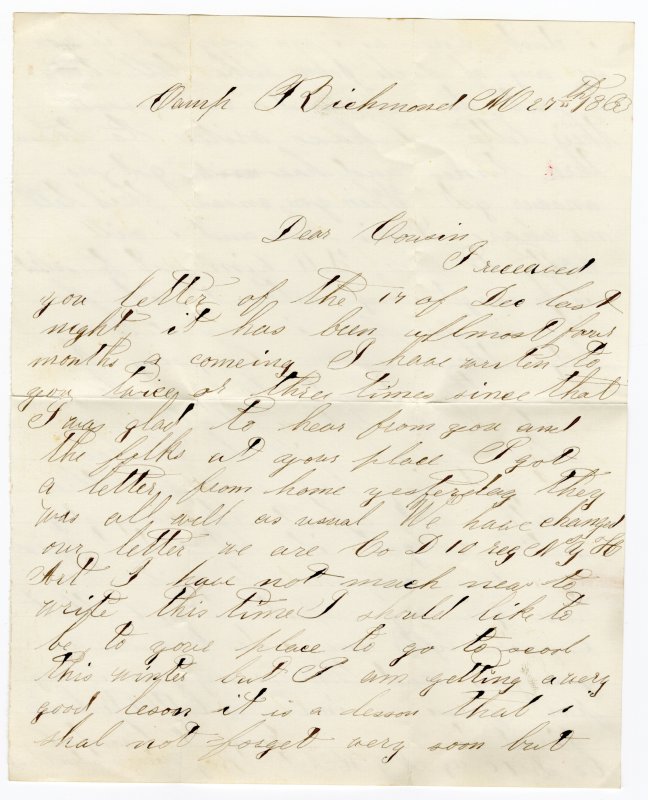 Camp Richmond M 27th 1863
Dear Cousin
I received
you letter of the 17 of Dec last
night it has been allmost four
months a comeing I have writen to
you twice or three times since that
I was glad to hear from you and
the folks at your place I got
a letter from home yesterday they
was all well as usual We have changed
our letter we are Co D 10 reg N Y H
Art I have not much news to
write this time I should like to
be to youre place to go to scool
this winter but I am getting a very
good leson it is a lesson that i
shal not forget very soon but